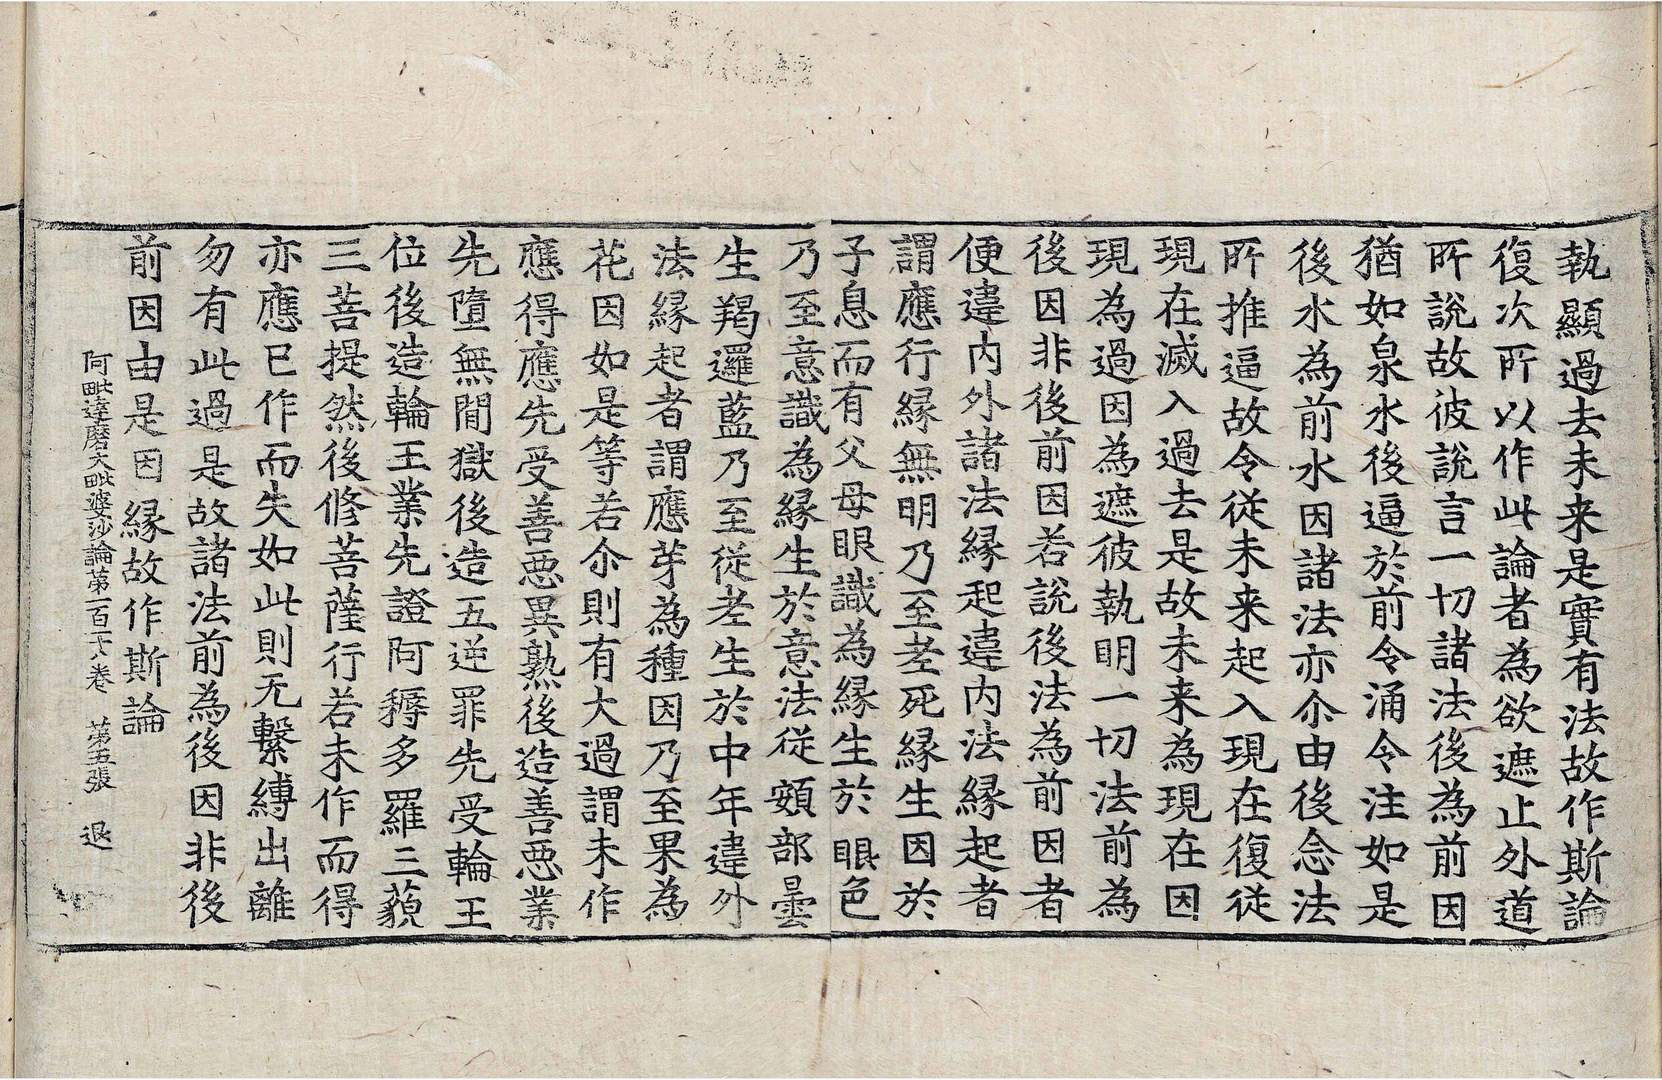 執顯過去未来是實有法故作斯論
復次所以作此論者為欲遮止外道
所說故彼說言一切諸法後為前因
猶如泉水後逼於前令涌令注如是
後水為前水因諸法亦尒由後念法
所推逼故令從未来起入現在復從
現在滅入過去是故未来為現在因
現為過因為遮彼執明一切法前為
後因非後前因若說後法為前因者
便違内外諸法縁起違内法縁起者
謂應行縁無明乃至老死縁生因於
子息而有父母眼識為縁生於眼色
乃至意識為縁生於意法從頞部曇
生羯邏藍乃至從老生於中年違外
法縁起者謂應芽為種因乃至果為
花因如是等若尒則有大過謂未作
應得應先受善惡異熟後造善惡業
先墮無間獄後造五逆罪先受輪王
位後造輪王業先證阿耨多羅三藐
三菩提然後修菩薩行若未作而得
亦應已作而失如此則无繋縛出離
勿有此過是故諸法前為後因非後
前因由是因縁故作斯論
阿毗達磨大毗婆沙論第一百卷 第五張 退